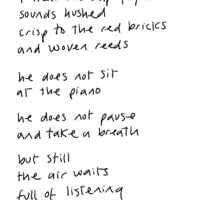 sounds hushed
crisp to the red bricks
and woven reeds
he does not sit
at the piano
he does not pause
and take a breath
but still
the air waits
full of listening